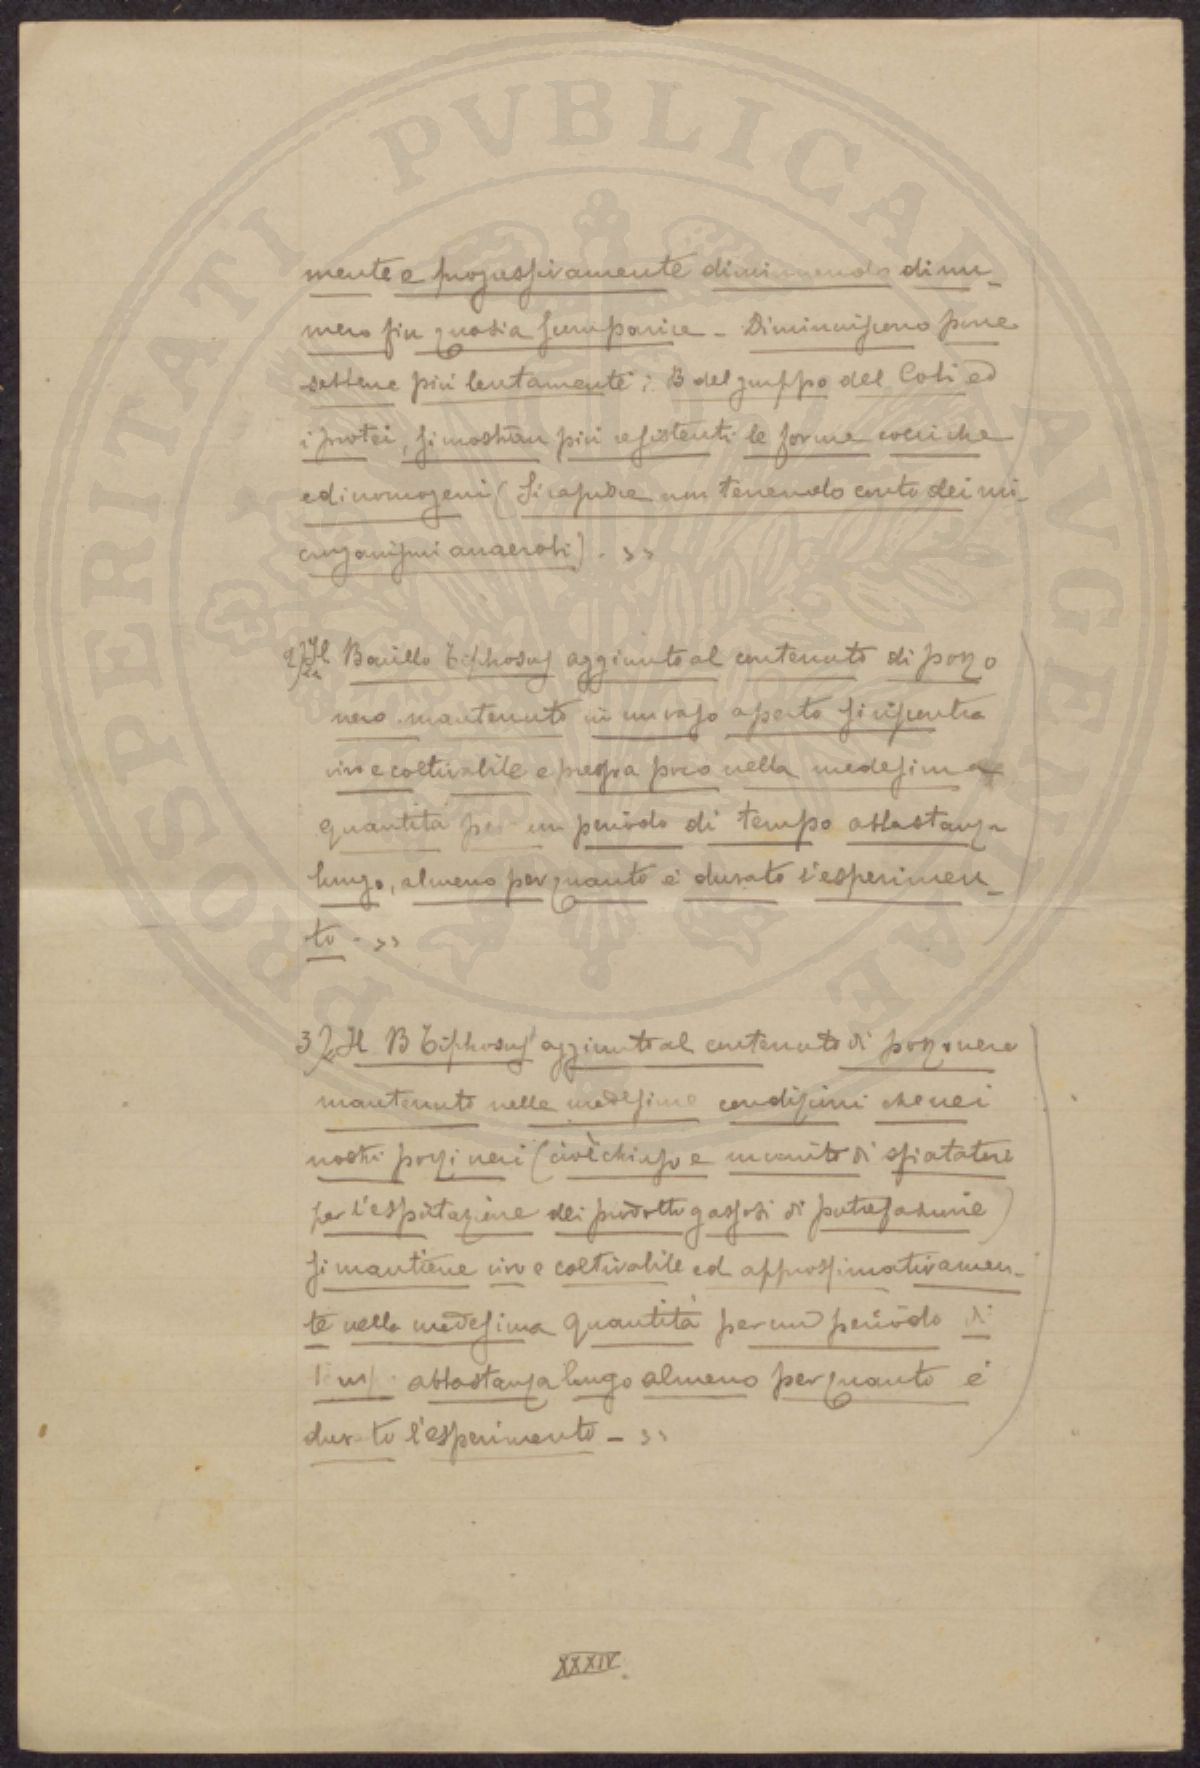 PROSPERITATI PVBLICAE AVGENDAE
mente e progressivamente diminuendo di nu-
mero fin quasi a scomparire - Diminuiscono pure
sebbene più lentamente i B del gruppo del Coli ed
i protei, si mostran più resistenti le forme cocciche
ed i cromogeni (Si capisce non tenendo conto dei mi-
crorganismi anaerobi) - »
2) «Il Bacillo Tiphosus aggiunto al contenuto di pozzo
nero mantenuto in un vaso aperto si riscontra
vivo e coltivabile e pressa poco nella medesima
quantità per un periodo di tempo abbastanza
lungo, almeno per quanto è durato l'esperimen-
to - »
3) «Il B Tiphosus aggiunto al contenuto di pozzo nero
mantenuto nelle medesime condizioni che nei
nostri pozzi neri (cioè chiuso e munito di sfiatatore
per l'espirazione dei prodotti gassosi di putrefazione)
si mantiene vivo e coltivabile ed approssimativamen-
te nella medesima quantità per un periodo di
tempo abbastanza lungo almeno per quanto è
durato l'esperimento - »
XXXIV.